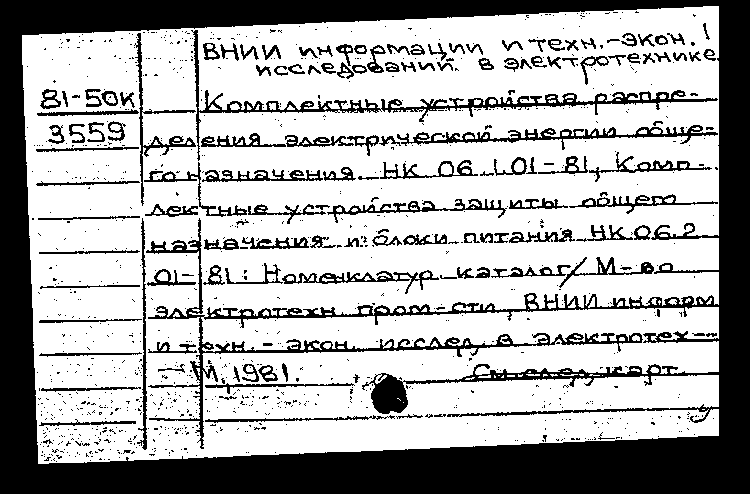 ВНИИ информации и техн.-экон.
исследований в электротехнике
81-50к Комплектные устройства распре-
3559 деления электрической энергии обще-
го назначения НК 06.1.01-81, Комп-
лектные устройства защиты общего
назначения и блоки питания НК 06.2
01-81: Номенклатур. каталог/ М-во
электротехн. пром-сти, ВНИИ информ
и техн.-экон. исслед. в электротех-
-М., 1981. См. след. карт